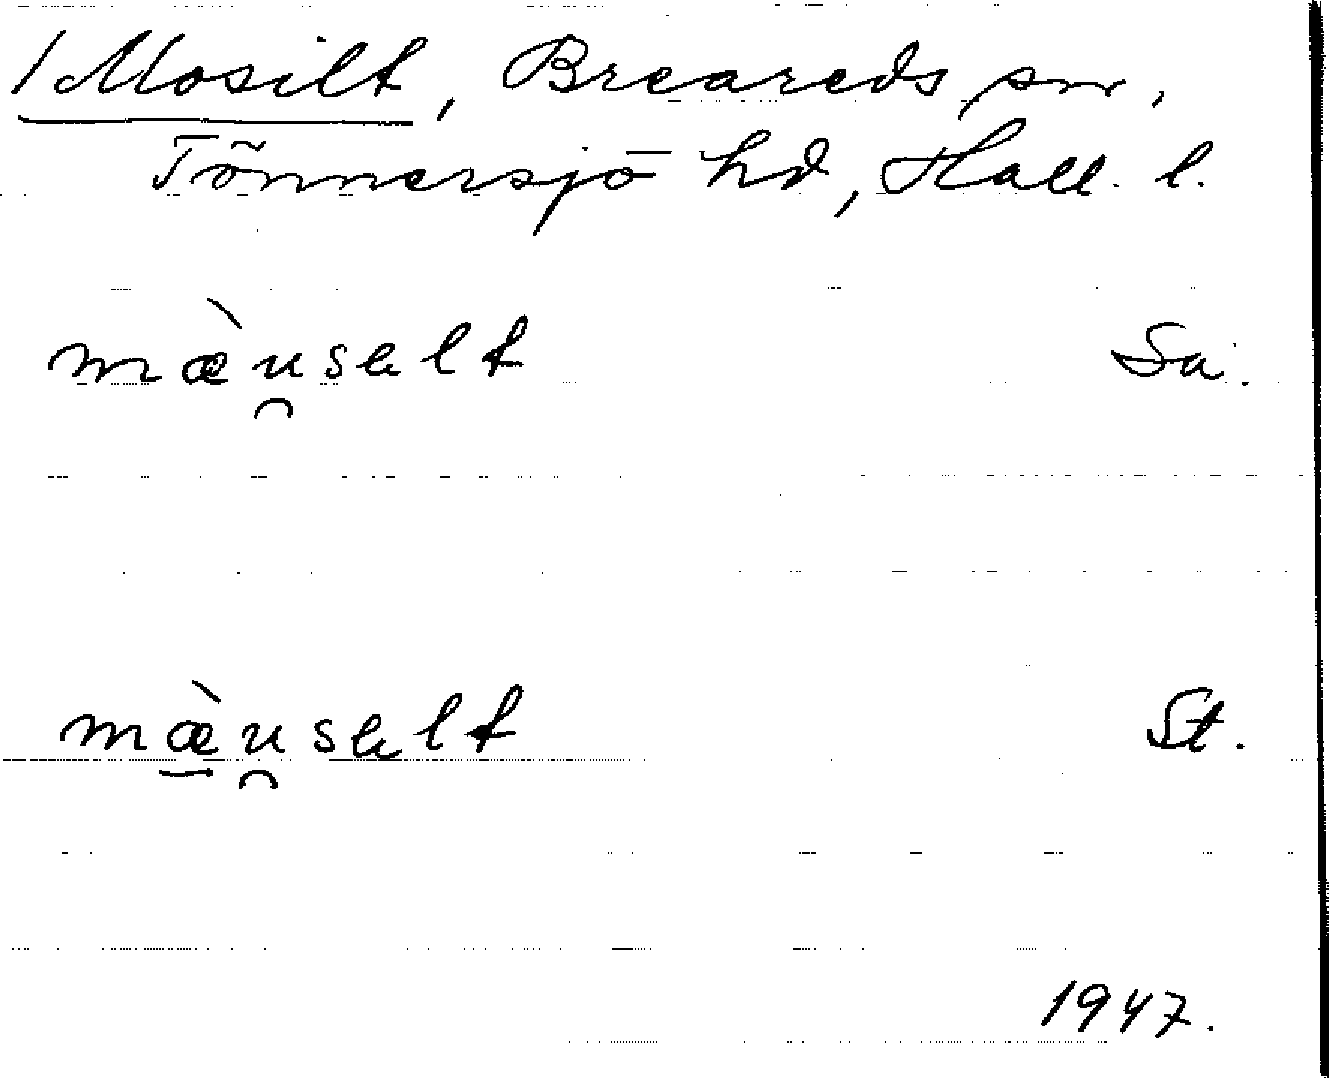 /Mosilt, Breareds sn,
Tönnersjö hd, Hall. l.
mæ̀u̯sɐlt Sa.
mæ̠̀u̯sɐlt St.
1947.